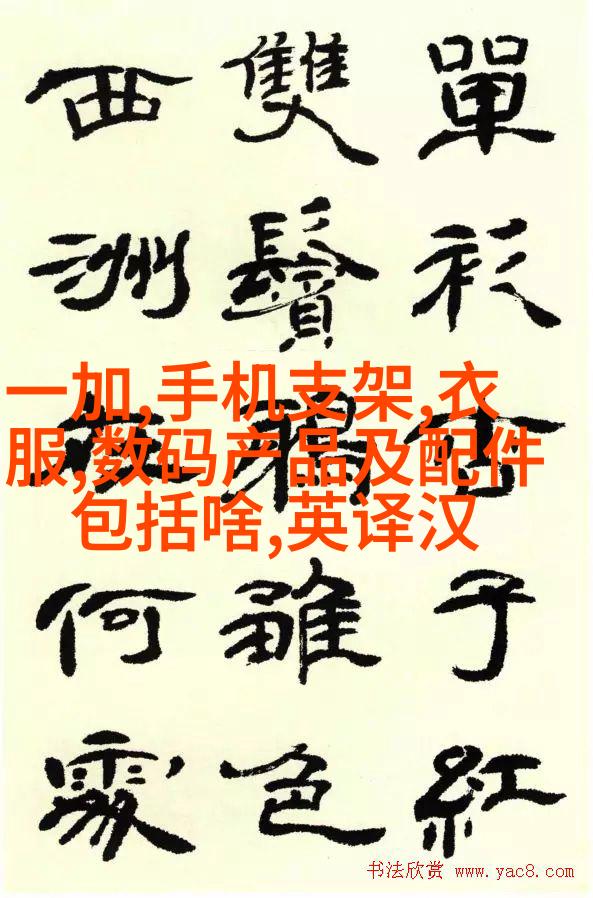 單衫杏子紅
雙鬢鴉雛色
西洲在何處
一加,手机支架,衣
服,数码产品及配件
包括啥,英译汉
书法欣赏 www.yac8.com